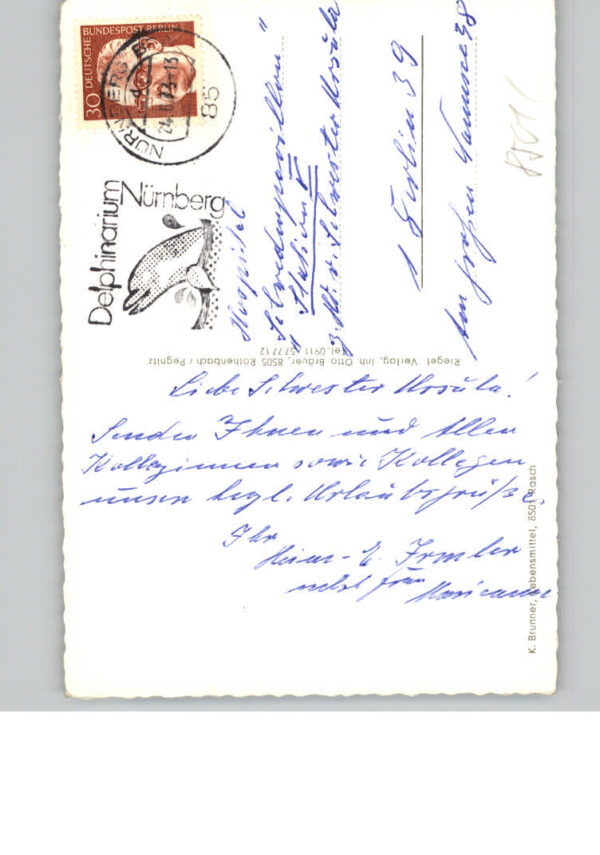 30 DEUTSCHE BUNDESPOST BERLIN
NÜRNBERG
85
Delphinarium Nürnberg
Hospital
"
"
Station
z. Hd. v. Schwester Ursula
1 Berlin 39
Am großen Wannsee
Riegel Verlag, Inh. Otto Bräuer, 8505 Röthenbach / Pegnitz
Tel. 0911 / 57 77 12
Liebe Schwester Ursula!
Senden Ihnen und Allen
Kolleginnen sowie Kollegen
unsere hrzl. Urlaubsgrüße.
Ihr
Heinz-E. Irmler
nebst Frau Marianne
K. Brunner, Lebensmittel, 8501 Rasch